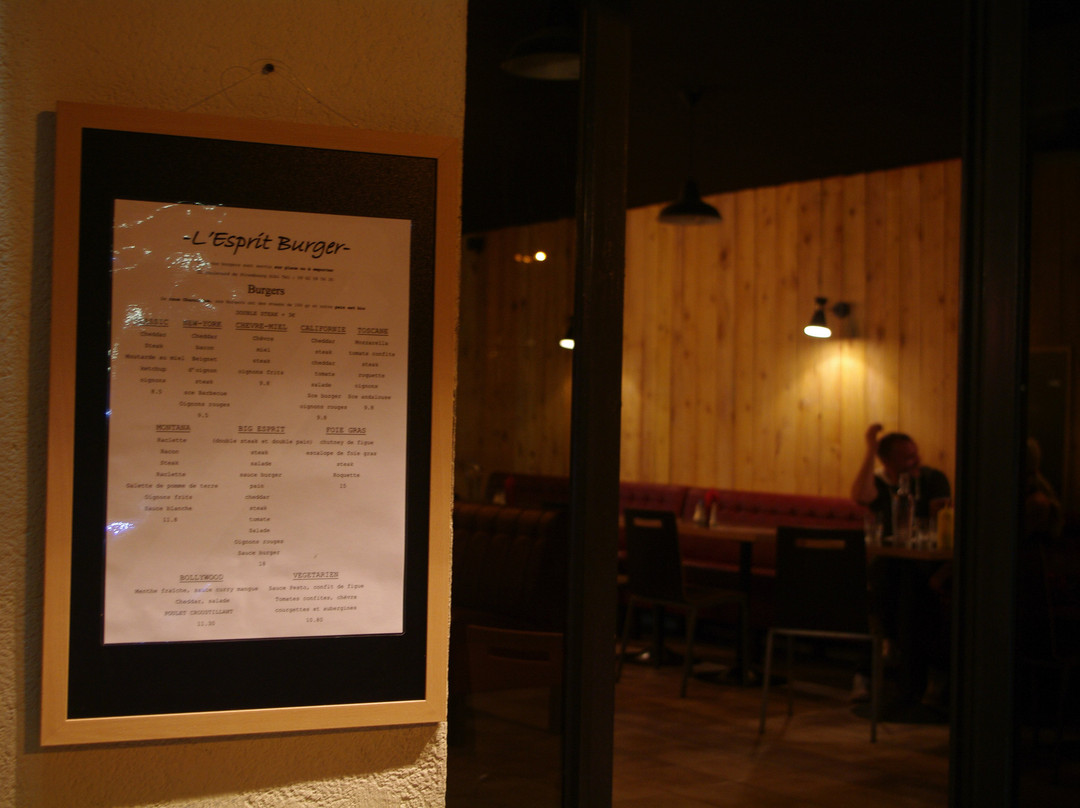 -L'Esprit Burger-
burgers sont servis sur place ou à emporter
Burgers
DOUBLE STEAK + 3€
CLASSIC
Cheddar
Steak
Moutarde au miel
Ketchup
oignons
8.5
NEW-YORK
Cheddar
bacon
Beignet
d'oignon
steak
sce Barbecue
Oignons rouges
9.5
CHEVRE-MIEL
Chèvre
miel
steak
oignons frits
9.8
CALIFORNIE
Cheddar
steak
cheddar
tomate
salade
Sce burger
oignons rouges
9.8
TOSCANE
Mozzarella
tomate confite
steak
roquette
oignons
Sce andalouse
9.8
MONTANA
Raclette
Bacon
Steak
Raclette
Galette de pomme de terre
Oignons frits
Sauce blanche
11.8
BIG ESPRIT
(double steak et double pain)
steak
salade
sauce burger
pain
cheddar
steak
tomate
Salade
Oignons rouges
Sauce burger
FOIE GRAS
chutney de figue
escalope de foie gras
steak
Roquette
15
BOLLYWOOD
Menthe fraîche, sauce curry mangue
Cheddar, salade
POULET CROUSTILLANT
11.30
VEGETARIEN
Sauce Pesto, confit de figue
Tomates confites, chèvre
courgettes et aubergines
10.80